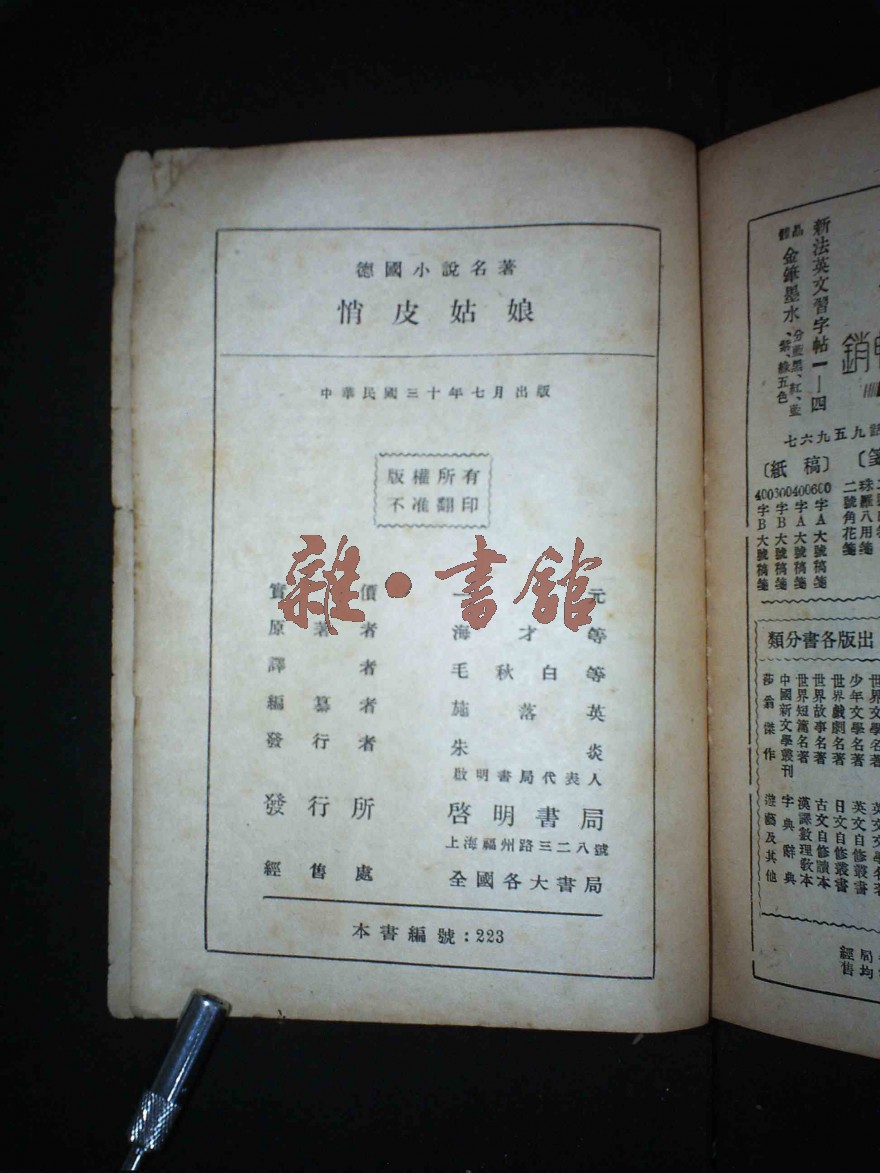 德國小說名著
悄皮姑娘
中華民國三十年七月出版
版權所有
不准翻印
實價 一元
原著者 海才等
譯者 毛秋白等
編纂者 施落英
發行者 朱炎
啟明書局代表人
發行所 啓明書局
上海福州路三二八號
經售處 全國各大書局
本書編號：223
雜·書館
新法英文習字帖一—四
金錐墨水
分藍黑、紅、藍
紫、綠五色
銷
七六九五九
〔紙稿〕
600字A大號稿箋
400字A大號稿箋
300字B大號稿箋
400字B大號稿箋
二號角花箋
類分書各版出
世界文學名著
少年文學名著
世界戲劇名著
世界故事名著
世界短篇名著
中國新文學叢刊
莎翁傑作
英文自修叢書
日文自修叢書
古文自修讀本
漢譯數理教本
字典辭典
遊藝及其他
經售
局均